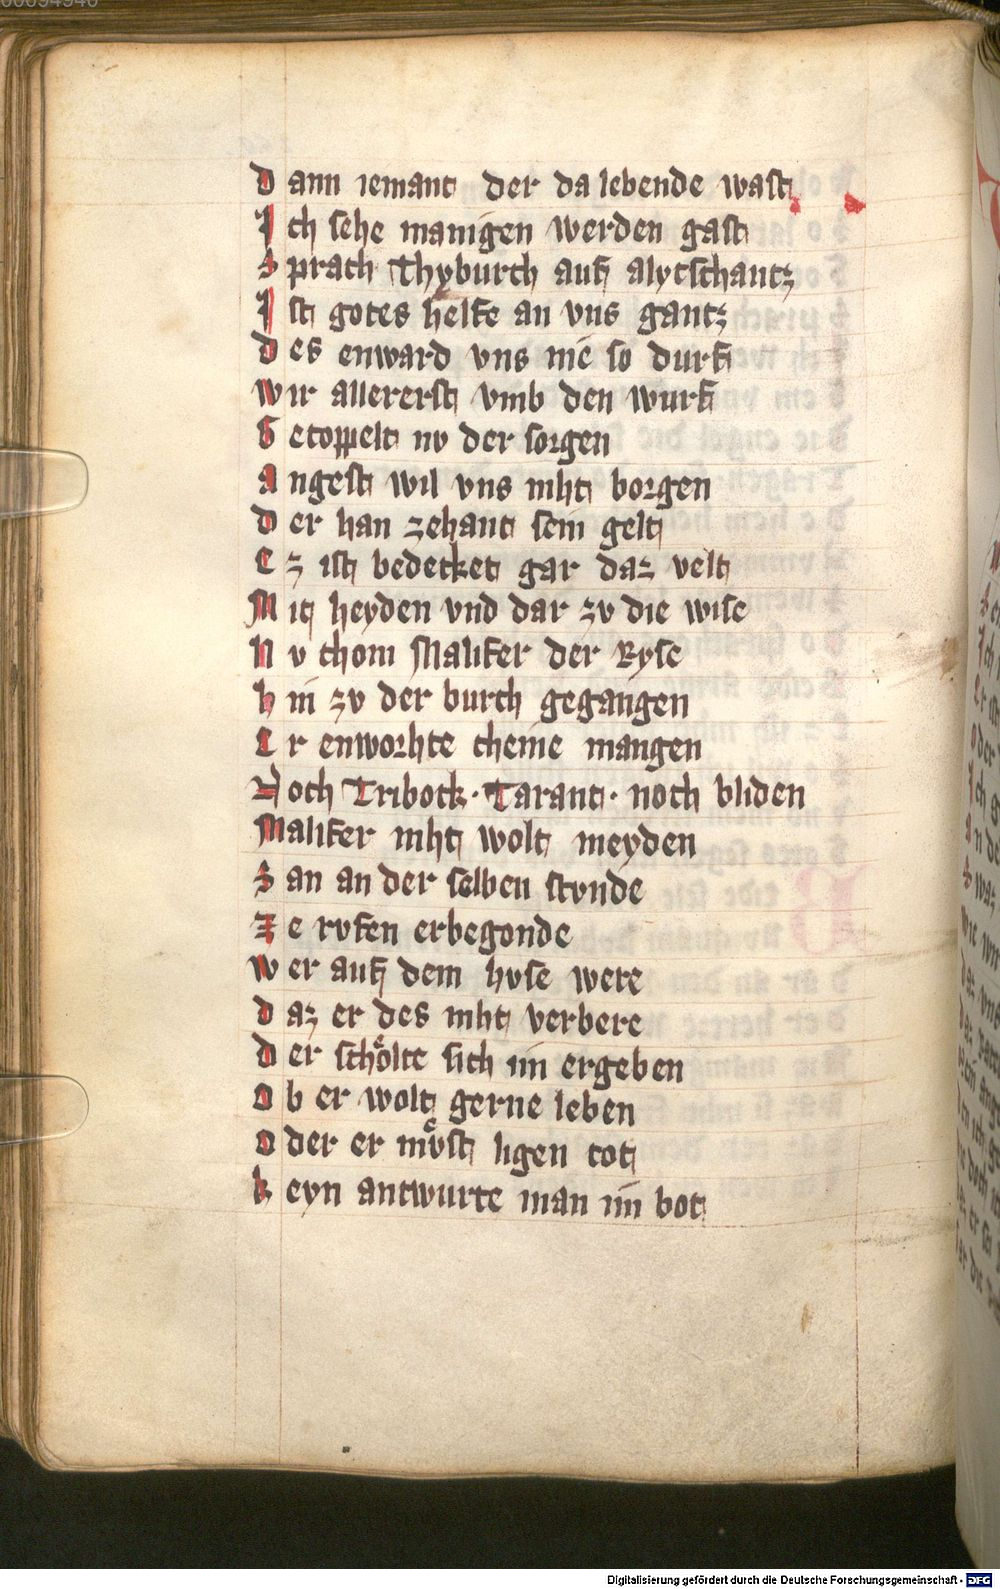 00094946
Dann iemant der da lebende wast
Ich sehe manigen werden gast
Sprach Thyburch auf alytschantz
Ist gotes helfe an vns gantz
Des enward vns nie so durft
Wir allererst vmb den wurf
Getoppelt nv der sorgen
Angest wil vns niht borgen
Der han zehant sein gelt
Ez ist bedecket gar daz velt
Mit heyden vnd dar zv die wise
Nv chom Malifer der Ryse
Hin zv der burch gegangen
Er enworhte cheine mangen
Noch Tribock · Tarant · noch bliden
Malifer niht wolt meyden
San an der selben stvnde
Ze rvfen er begonde
Wer auf dem hvse were
Daz er des niht verbere
Der schölte sich im ergeben
Ob er wolt gerne leben
Oder er mvͦst ligen tot
Keyn antwurte man im bot
Digitalisierung gefördert durch die Deutsche Forschungsgemeinschaft - DFG